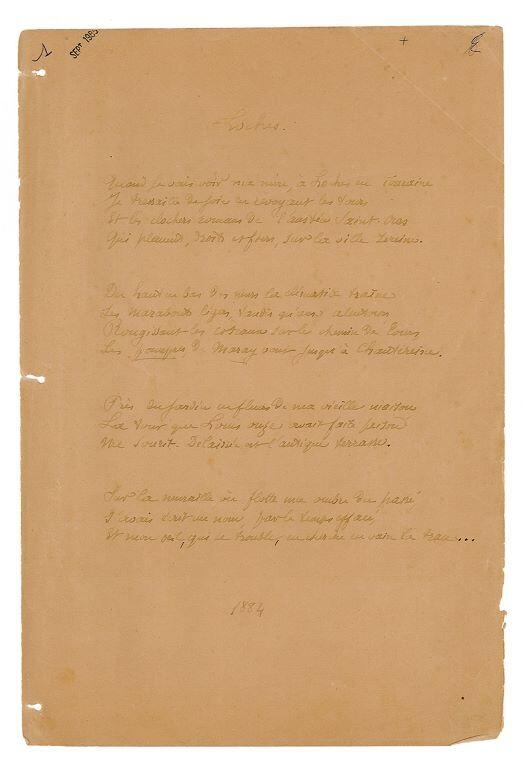 1
SEPT 1985
Loches.
Quand je vais voir ma mère, à Loches en Touraine
Je tressaille de joie en revoyant les tours
Et les clochers romans de Saint Ours
Qui planent, droits et fiers, sur la ville sereine.
Du haut en bas des murs la clématite traîne
Ses marabouts légers, tandis qu'aux alentours
Rougissent les coteaux sur le chemin de Tours
Les pampres de Maray vont jusqu'à Chantereine.
Près du jardin en fleurs de ma vieille maison
La tour que Louis onze avait faite prison
Me sourit. Délaissée est l'antique terrasse.
Sur la muraille où flotte une ombre du passé
J'avais écrit un nom, par le temps effacé,
Et mon œil, qui se trouble, en cherche en vain la trace...
1884